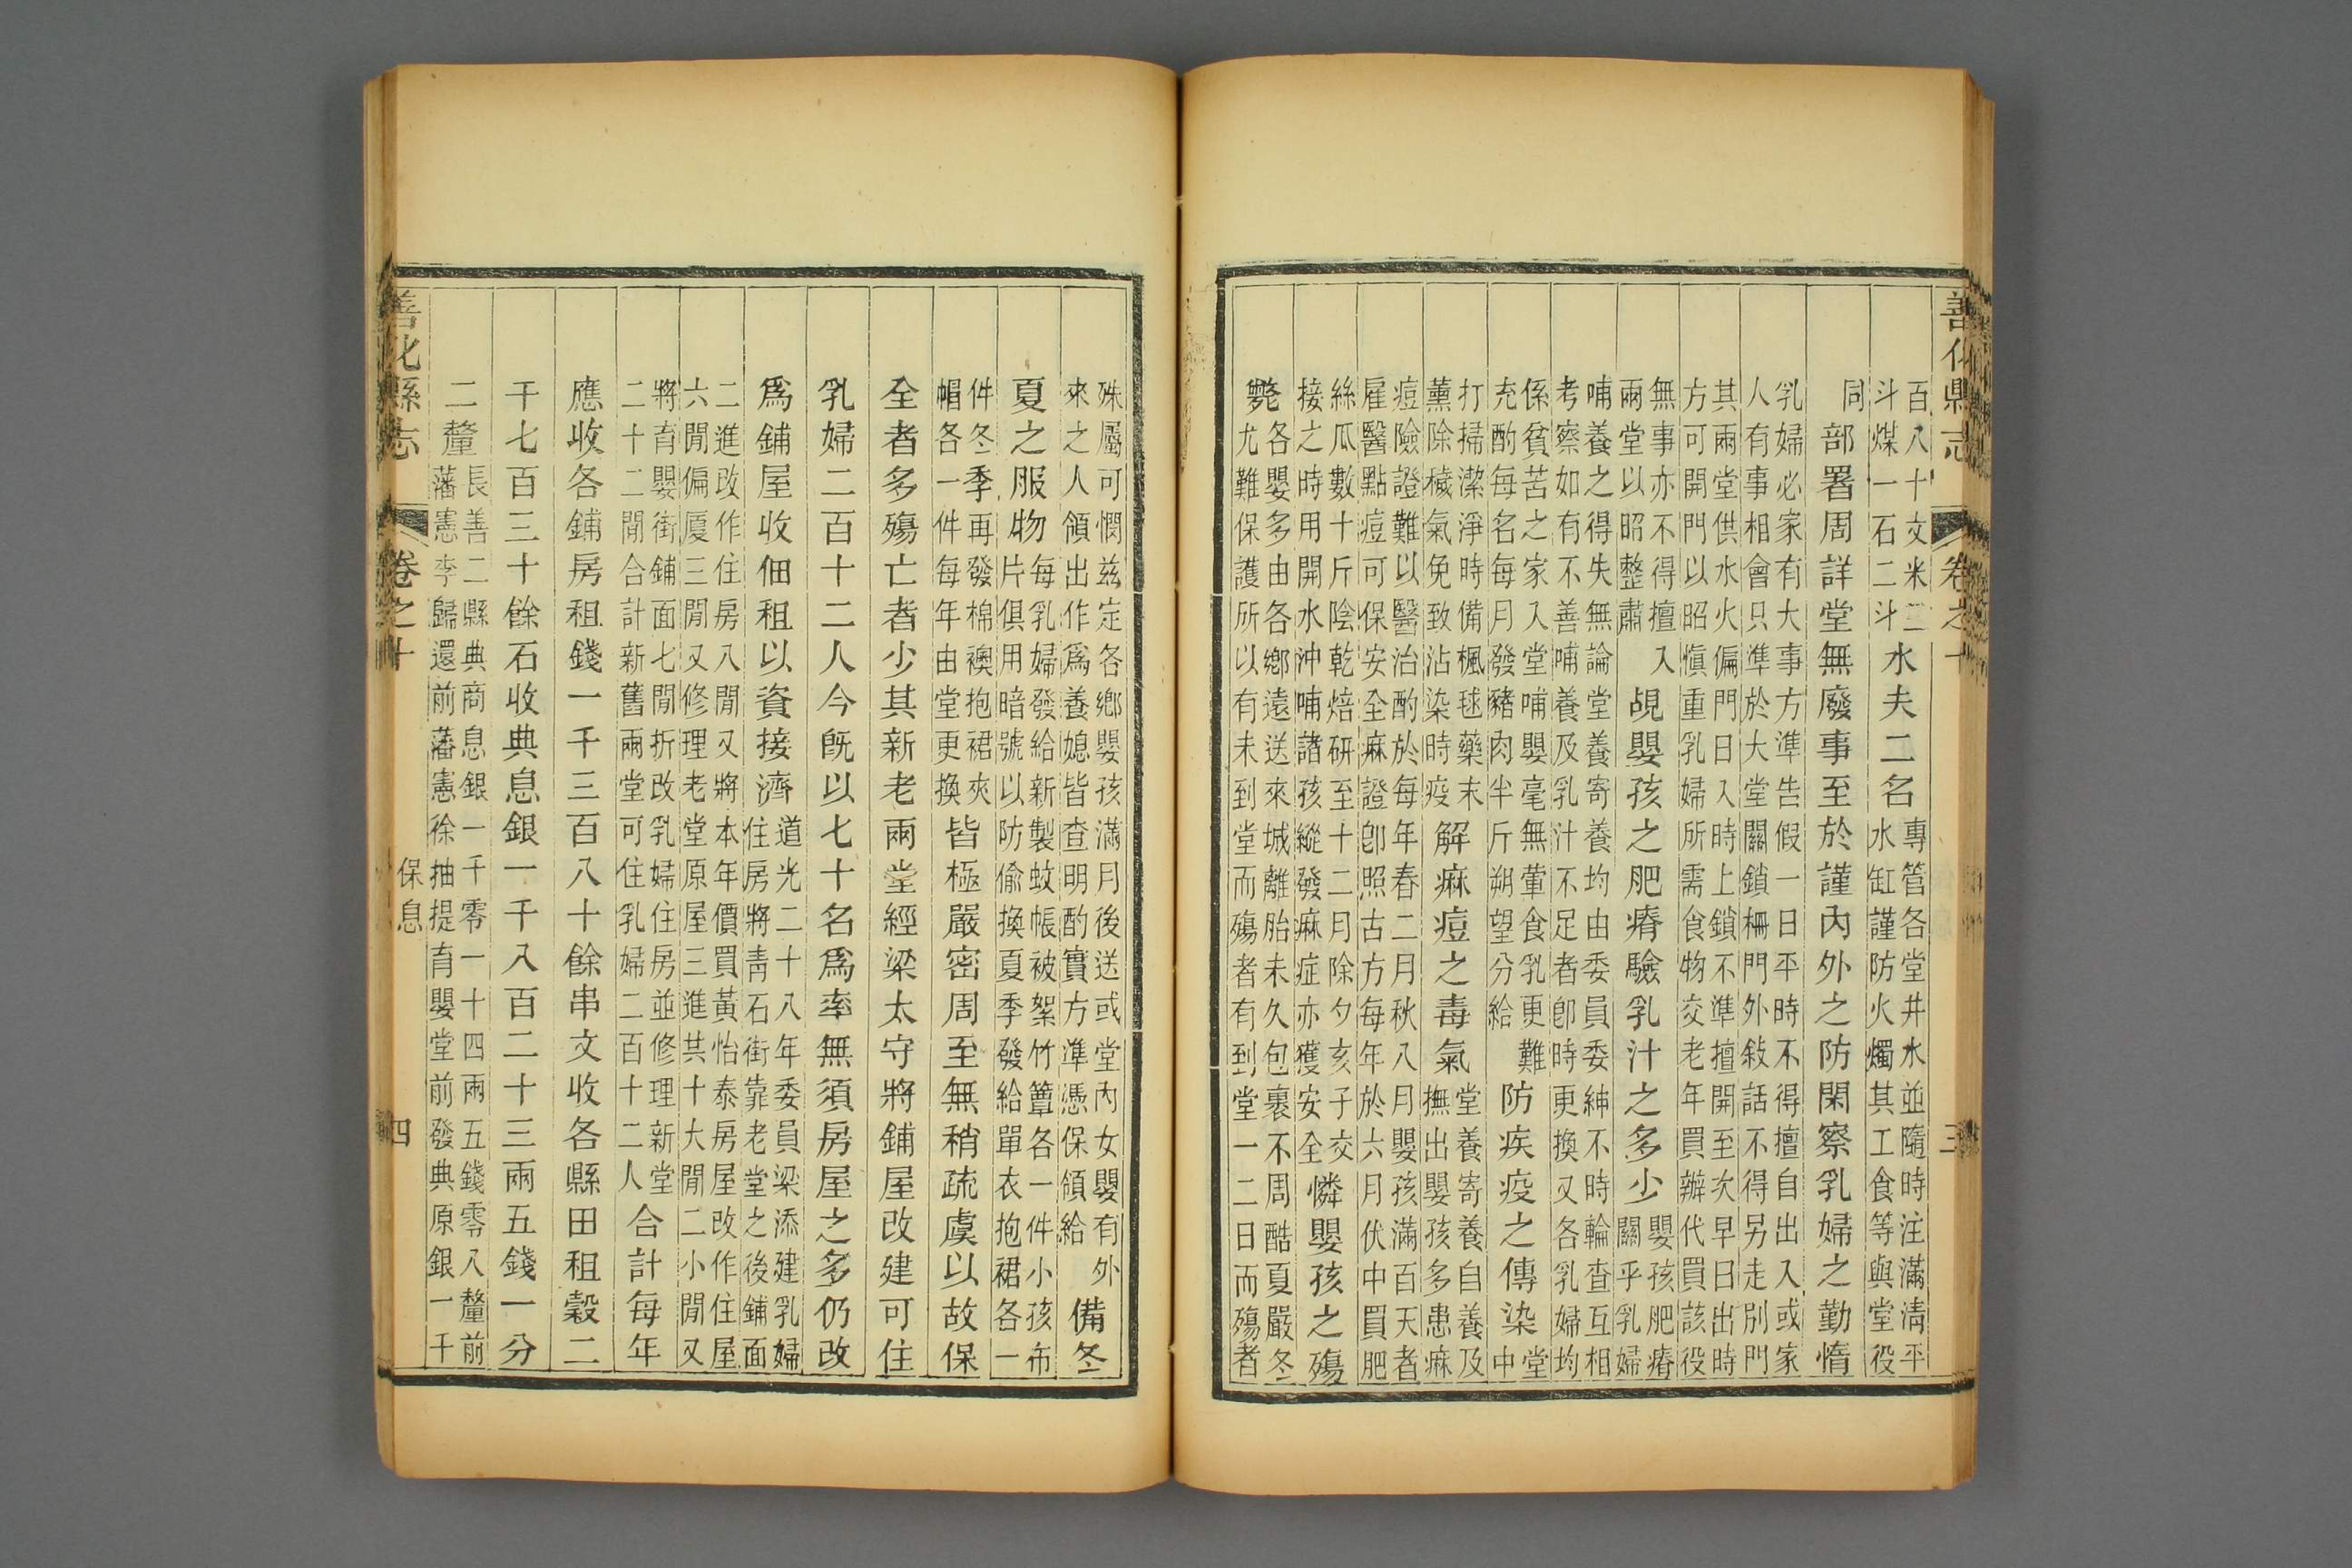 善化縣志 卷之十 三
百八十文米三
斗煤一石二斗
水夫二名
專管各堂井水並隨時注滿清平
水缸謹防火燭其工食等與堂役
同
部署周詳堂無廢事至於謹內外之防閑察乳婦之勤惰
乳婦必家有大事方準告假一日平時不得擅自出入或家
人有事相會只準於大堂關鎖柵門外敍話不得另走別門
其兩堂供水火偏門日入時上鎖不準擅開至次早日出時
方可開門以昭愼重乳婦所需食物交老年買辦代買該役
無事亦不得擅入
兩堂以昭整肅
覘嬰孩之肥瘠驗乳汁之多少
嬰孩肥瘠
關乎乳婦
哺養之得失無論堂養寄養均由委員委紳不時輪查互相
考察如有不善哺養及乳汁不足者卽時更換又各乳婦均
係貧苦之家入堂哺嬰毫無葷食乳更難
充酌每名每月發豬肉半斤朔望分給
防疾疫之傳染
堂
中
打掃潔淨時備楓毬藥末
薰除穢氣免致沾染時疫
解麻痘之毒氣
堂養寄養自養及
撫出嬰孩多患麻
痘險證難以醫治酌於每年春二月秋八月嬰孩滿百天者
雇醫點痘可保安全麻證卽照古方每年於六月伏中買肥
絲瓜數十斤陰乾焙研至十二月除夕亥子交
接之時用開水沖哺諸孩縱發麻症亦獲安全
憐嬰孩之殤
斃
各嬰多由各鄉遠送來城離胎未久包裹不周酷夏嚴冬
尤難保護所以有未到堂而殤者有到堂一二日而殤者
殊屬可憫茲定各鄉嬰孩滿月後送或堂內女嬰有外
來之人領出作爲養媳皆查明酌實方準憑保領給
備冬
夏之服物
每乳婦發給新製蚊帳被絮竹簟各一件小孩布
片俱用暗號以防偷換夏季發給單衣抱裙各一
件冬季再發棉襖抱裙夾
帽各一件每年由堂更換
皆極嚴密周至無稍疏虞以故保
全者多殤亡者少其新老兩堂經梁太守將鋪屋改建可住
乳婦二百十二人今旣以七十名爲率無須房屋之多仍改
爲鋪屋收佃租以資接濟
道光二十八年委員梁添建乳婦
住房將靑石街靠老堂之後鋪面
二進改作住房八間又將本年價買黃怡泰房屋改作住屋
六間偏厦三間又修理老堂原屋三進共十大間二小間又
將育嬰街鋪面七間折改乳婦住房並修理新堂
二十二間合計新舊兩堂可住乳婦二百十二人
合計每年
應收各鋪房租錢一千三百八十餘串文收各縣田租穀二
千七百三十餘石收典息銀一千八百二十三兩五錢一分
二釐
長善二縣典商息銀一千零一十四兩五錢零八釐前
藩憲李歸還前藩憲徐抽提育嬰堂前發典原銀一千
善化縣志 卷之十 保息 四